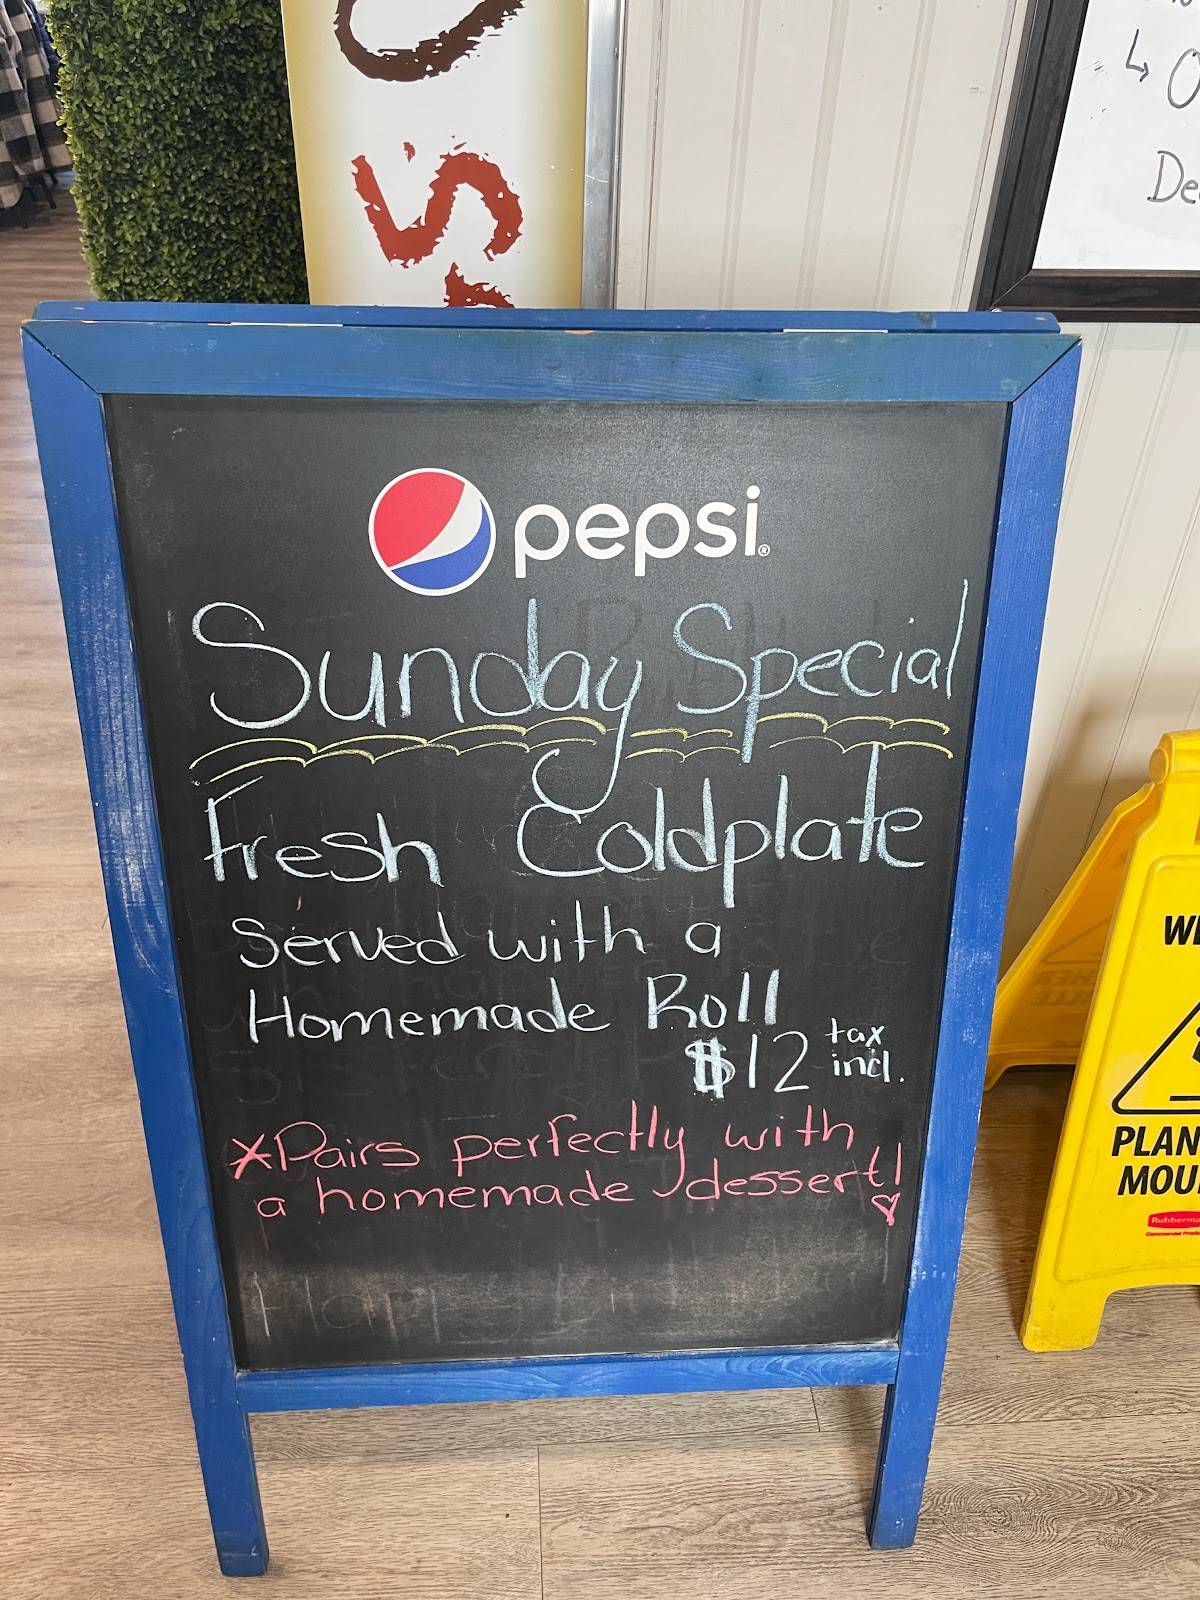 pepsi®
Sunday Special
Fresh Coldplate
Served with a
Homemade Roll
$12 tax
incl.
*Pairs perfectly with
a homemade dessert!
PLAN
MOU
Rubberma